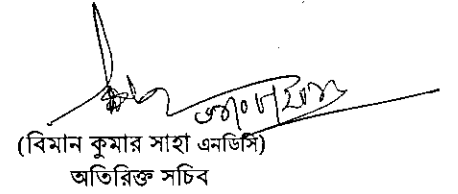 (বিমান কুমার সাহা এনডিসি)
অতিরিক্ত সচিব